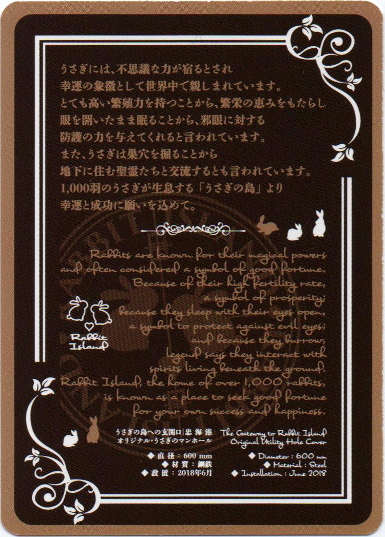 うさぎには、不思議な力が宿るとされ
幸運の象徴として世界中で親しまれています。
とても高い繁殖力を持つことから、繁栄の恵みをもたらし
眼を開いたまま眠ることから、邪眼に対する
防護の力を与えてくれると言われています。
また、うさぎは巣穴を掘ることから
地下に住む聖霊たちと交流するとも言われています。
1,000羽のうさぎが生息する「うさぎの島」より
幸運と成功に願いを込めて。
Rabbits are known for their magical powers
and often considered a symbol of good fortune.
Because of their high fertility rate,
a symbol of prosperity;
because they sleep with their eyes open,
a symbol to protect against evil eyes;
and because they burrow,
legend says they interact with
spirits living beneath the ground.
Rabbit Island, the home of over 1,000 rabbits,
is known as a place to seek good fortune
for your own success and happiness.
Rabbit
Island
うさぎの島への玄関口|忠海港
オリジナル・うさぎのマンホール
◆ 直径：600 mm
◆ 材質：鋼鉄
◆ 設置：2018年6月
The Gateway to Rabbit Island
Original Utility Hole Cover
◆ Diameter : 600 mm
◆ Material : Steel
◆ Installation : June 2018